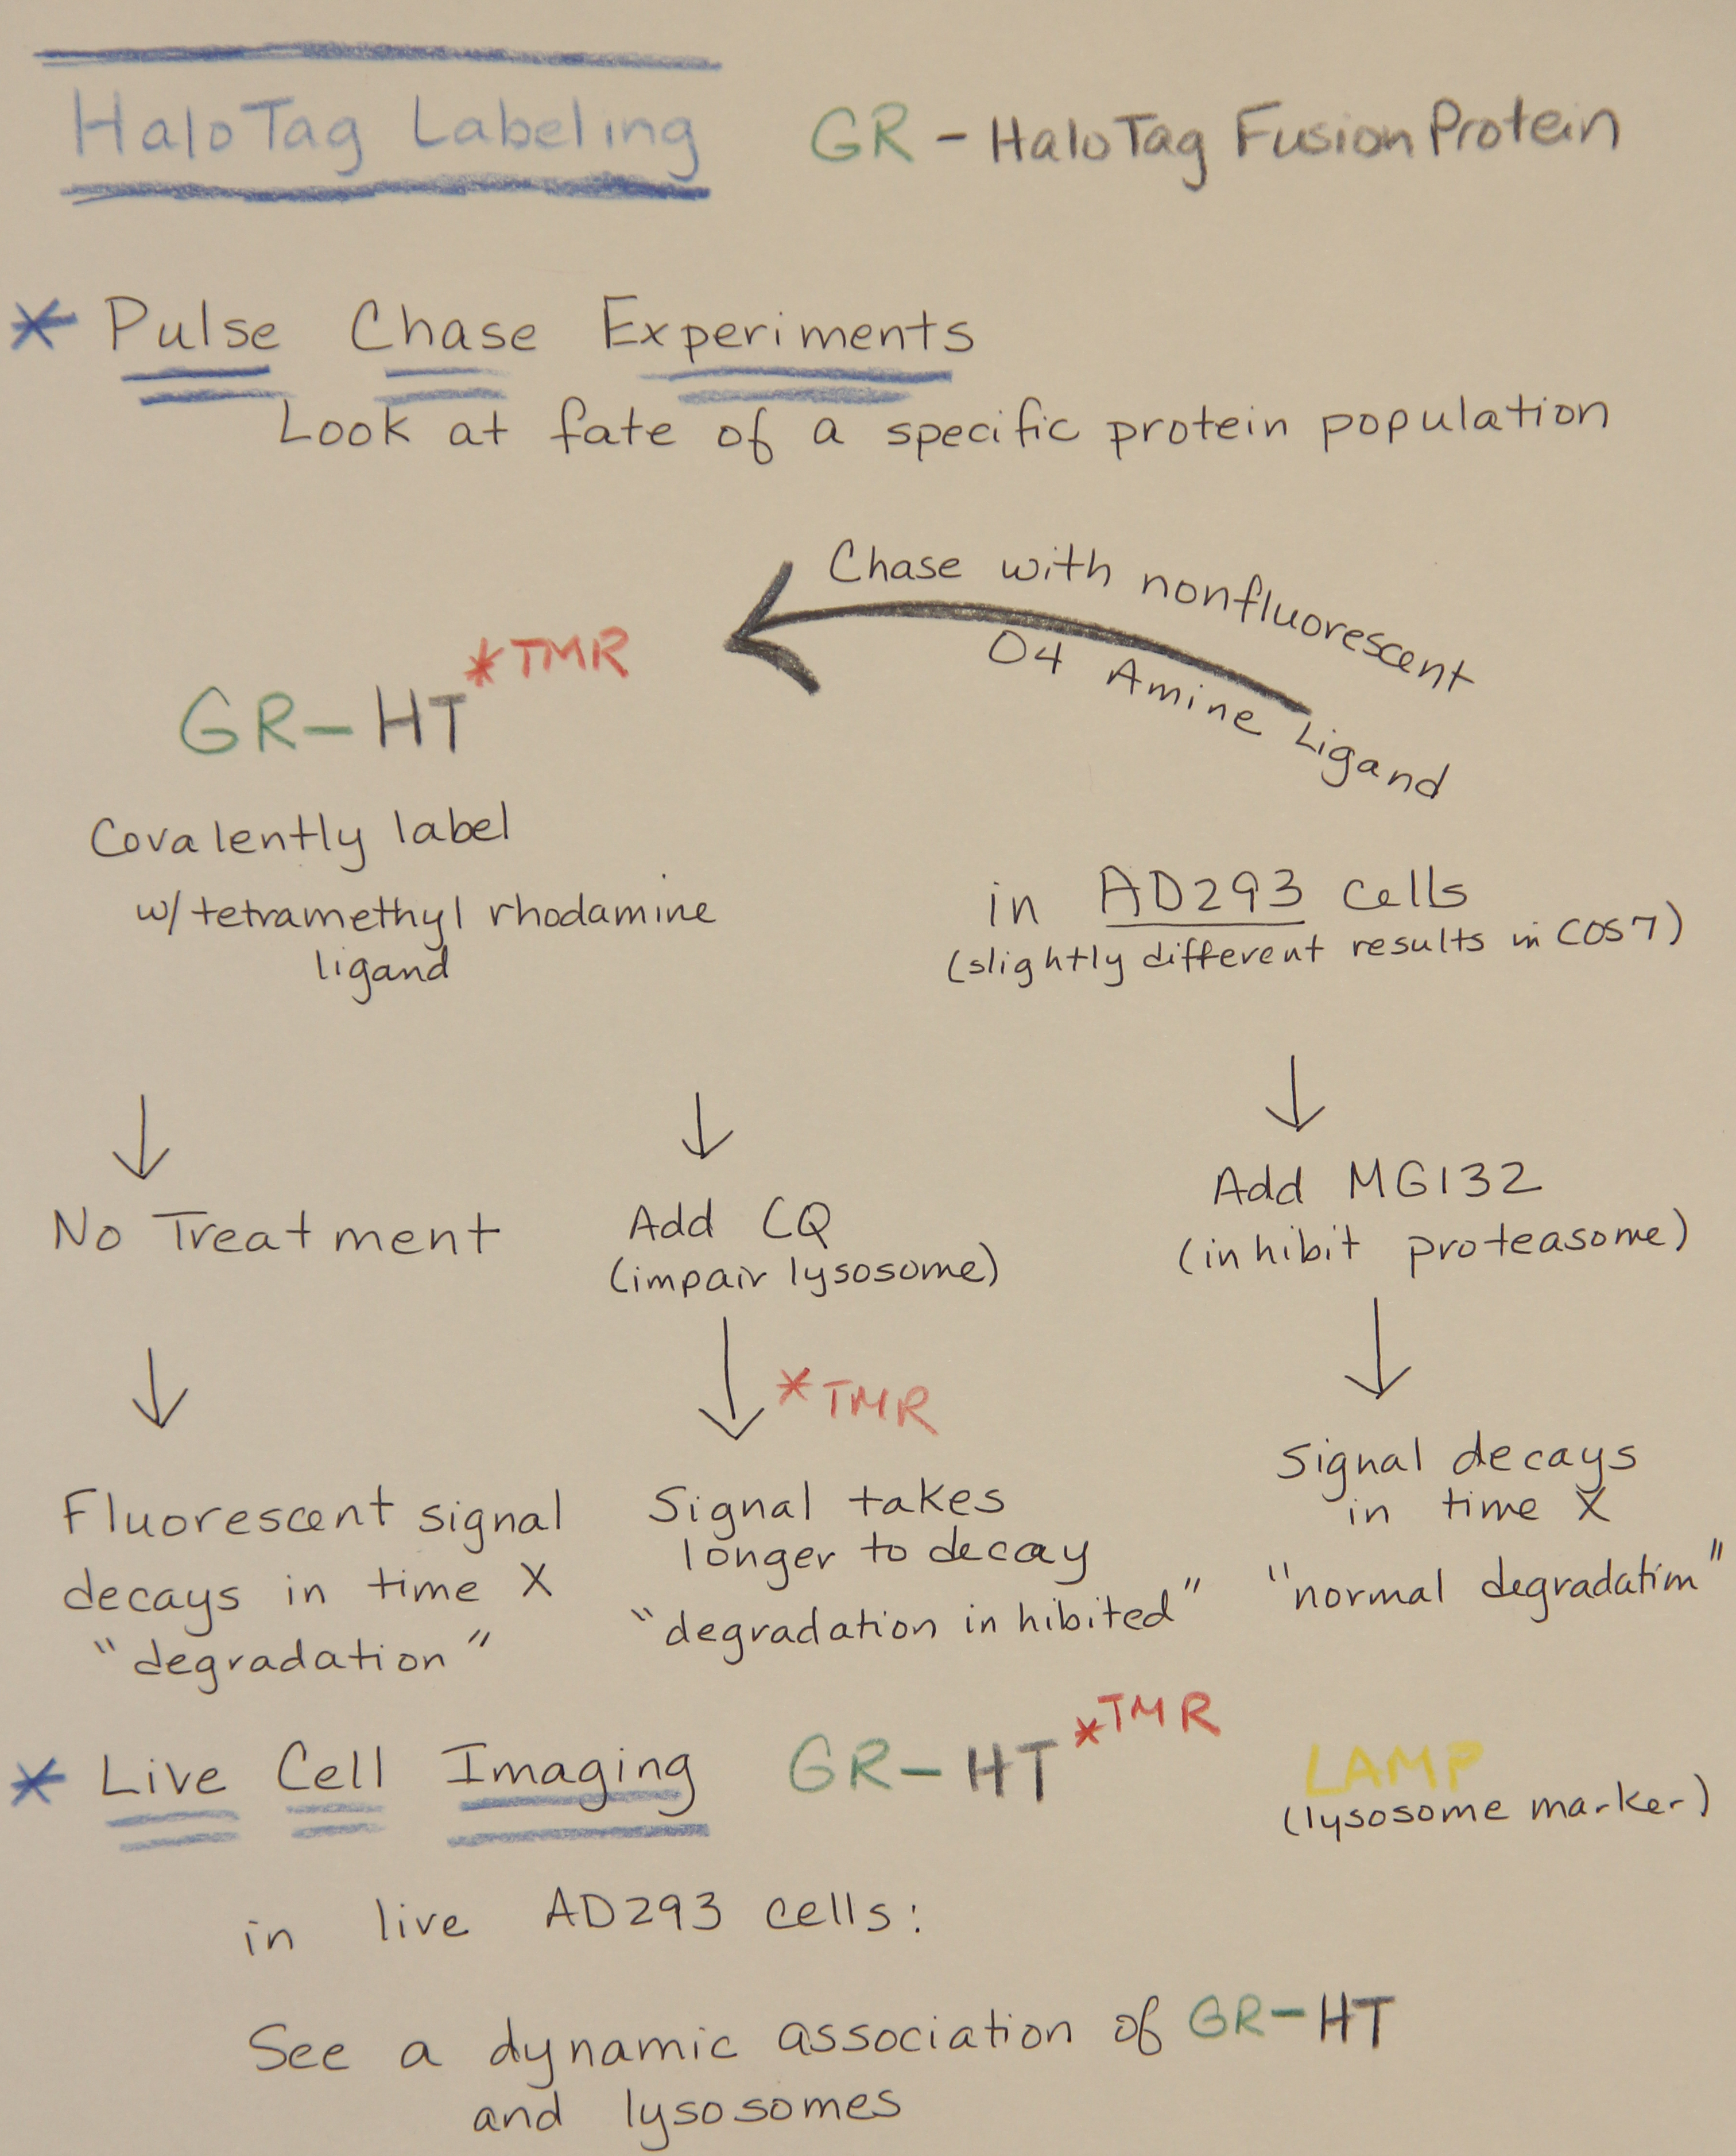 HaloTag Labeling
GR - HaloTag Fusion Protein
* Pulse Chase Experiments
Look at fate of a specific protein population
Chase with nonfluorescent
O4 Amine Ligand
GR-HT *TMR
Covalently label
w/tetramethyl rhodamine
ligand
in AD293 cells
(slightly different results in COS7)
No Treatment
Add CQ
(impair lysosome)
Add MG132
(inhibit proteasome)
*TMR
Fluorescent signal
decays in time X
"degradation"
Signal takes
longer to decay
"degradation inhibited"
Signal decays
in time X
"normal degradation"
* Live Cell Imaging
GR-HT *TMR
LAMP
(lysosome marker)
in live AD293 cells:
See a dynamic association of GR-HT
and lysosomes